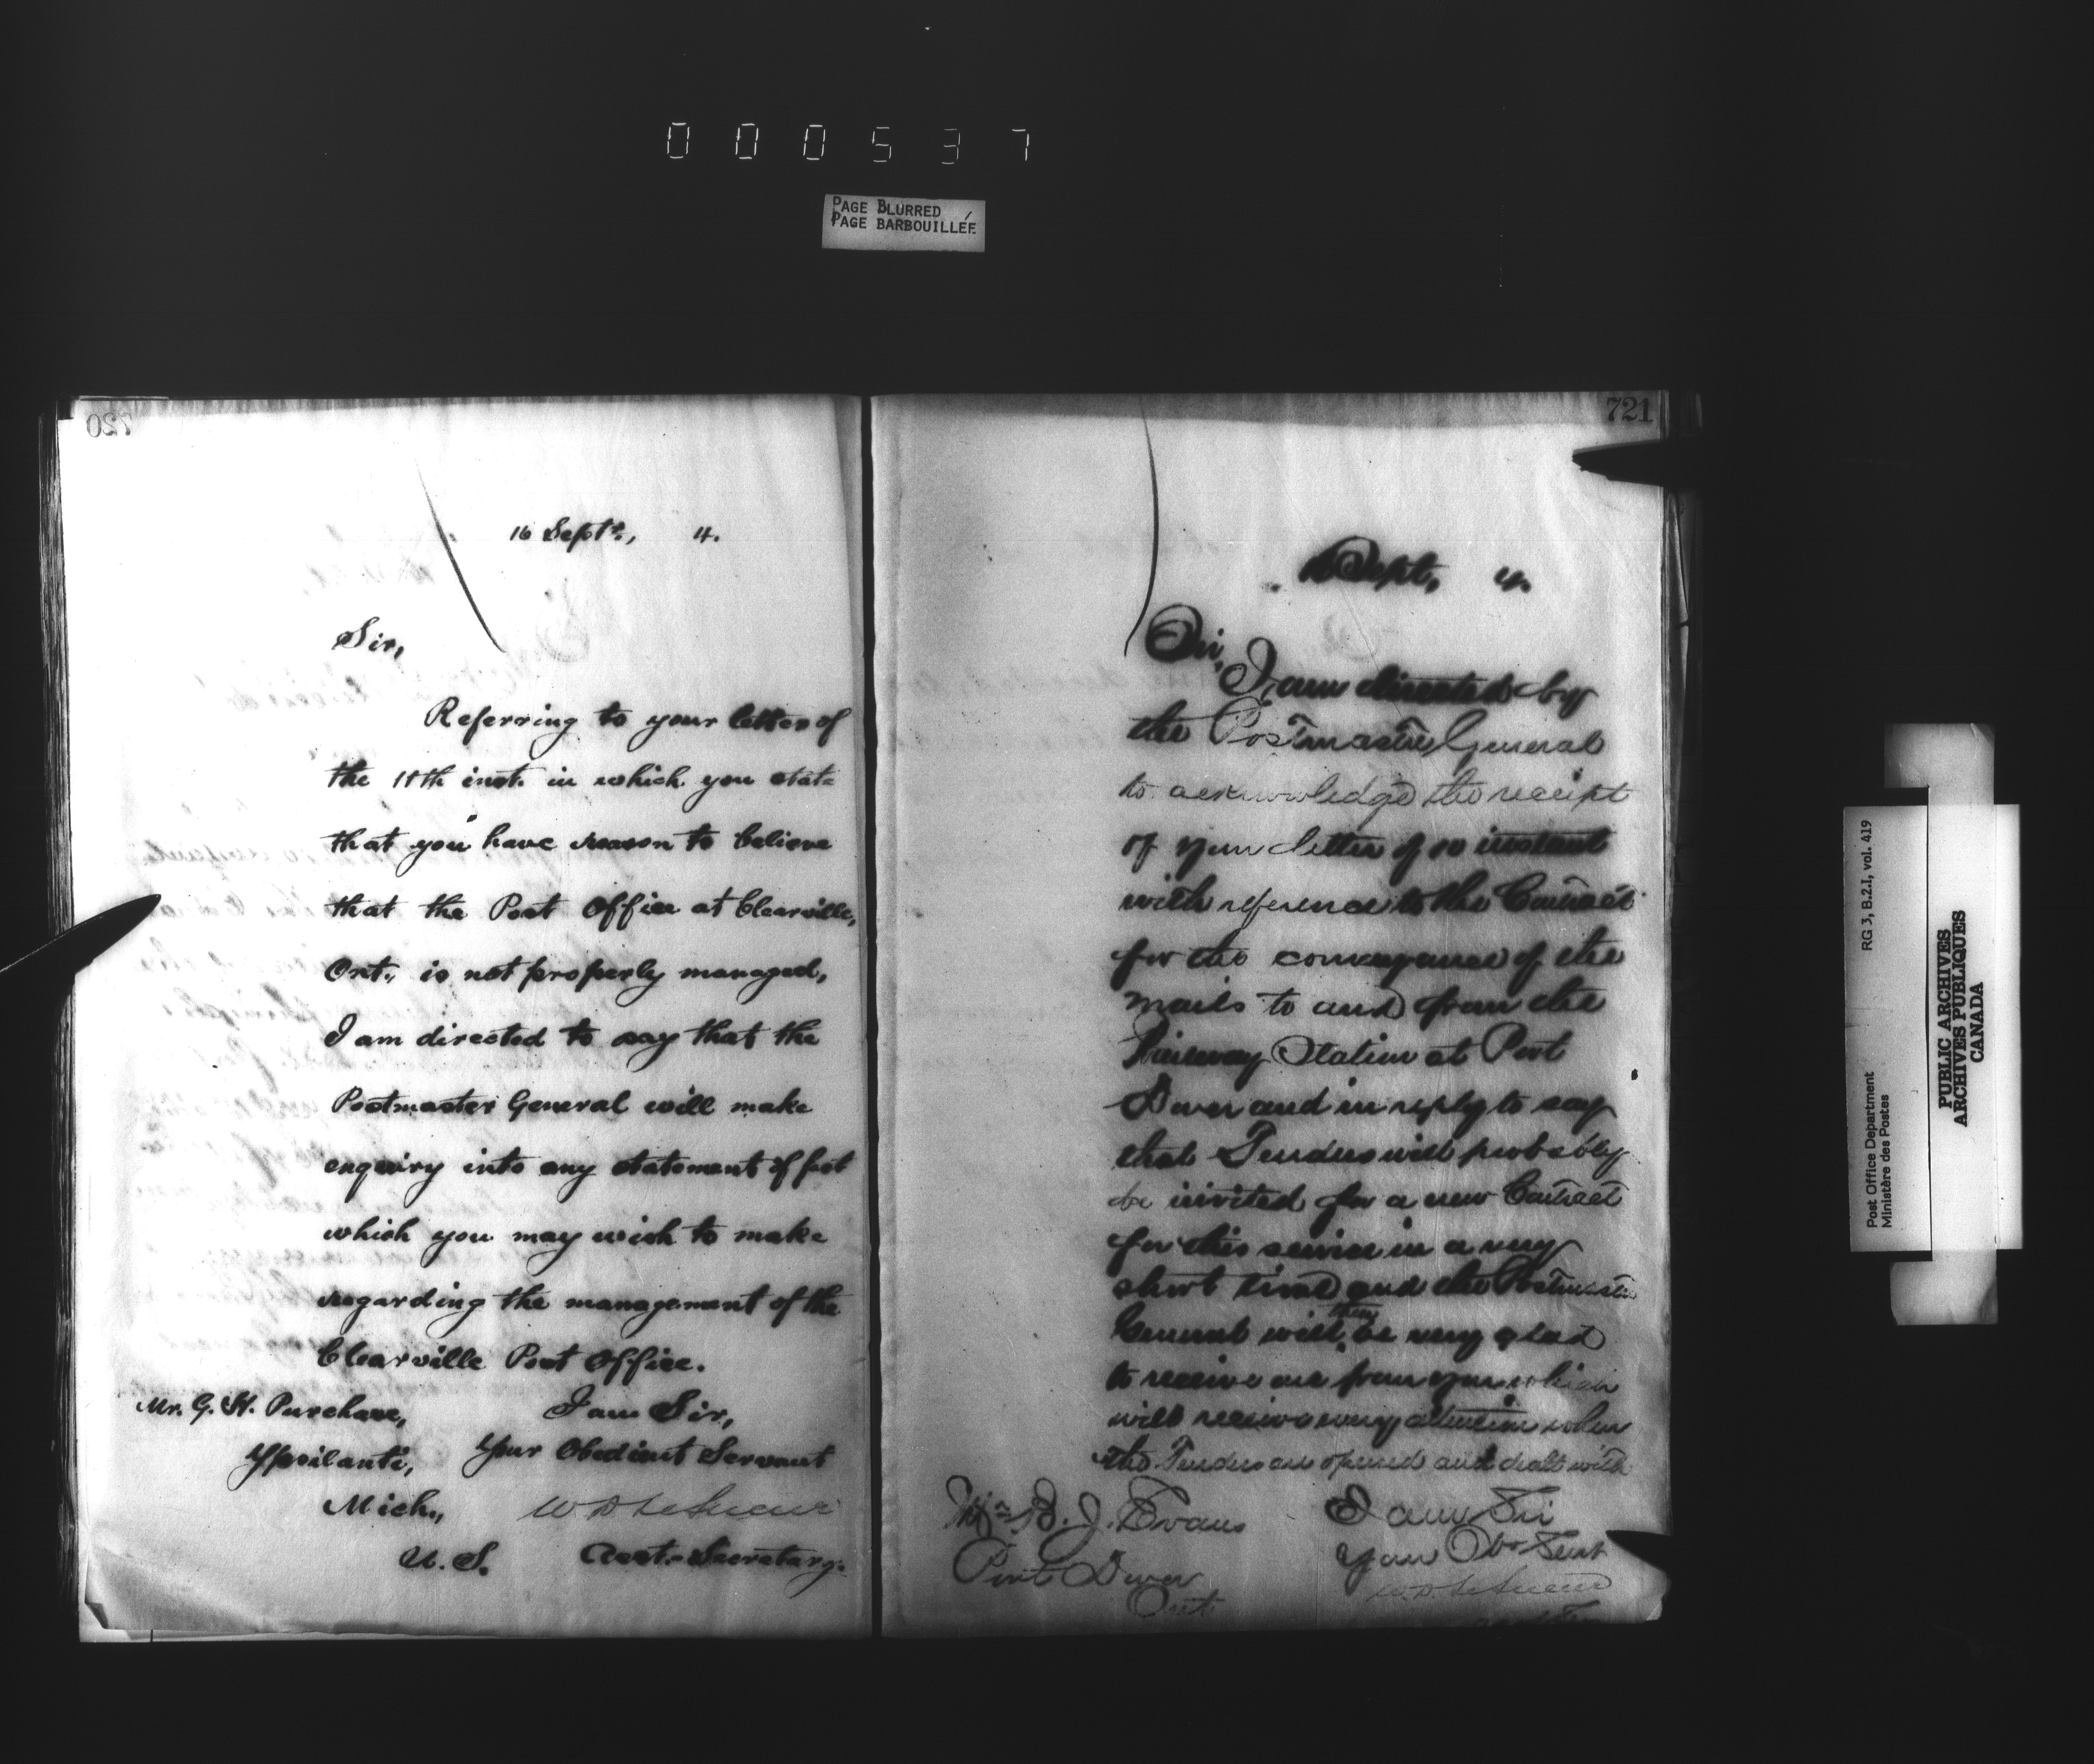 000537
PAGE BLURRED
PAGE BARBOUILLÉE
720
16 Sept., 4.
Sir,
Referring to your letter of
the 11th inst. in which you state
that you have reason to believe
that the Post Office at Clearville,
Ont., is not properly managed,
I am directed to say that the
Postmaster General will make
enquiry into any statement of fact
which you may wish to make
regarding the management of the
Clearville Post Office.
I am Sir,
Your Obedient Servant
W D LeSueur
Asst. Secretary.
Mr. G. H. Purchase,
Ypsilanti,
Mich.,
U. S.
721
Sept, 4.
Sir,
I am directed by
the Postmaster General
to acknowledge the receipt
of your letter of 10 instant
with reference to the Contract
for the conveyance of the
mails to and from the
Railway Station at Port
Dover and in reply to say
that Tenders will probably
be invited for a new Contract
for this service in a very
short time and the Postmaster
General will then be very glad
to receive one from you which
will receive every attention when
the Tenders are opened and dealt with
I am Sir
Your Ob Servt
W. D. LeSueur
Mr. B. J. Evans
Port Dover
Ont
RG 3, B.2.I, vol. 419
Post Office Department
Ministère des Postes
PUBLIC ARCHIVES
ARCHIVES PUBLIQUES
CANADA